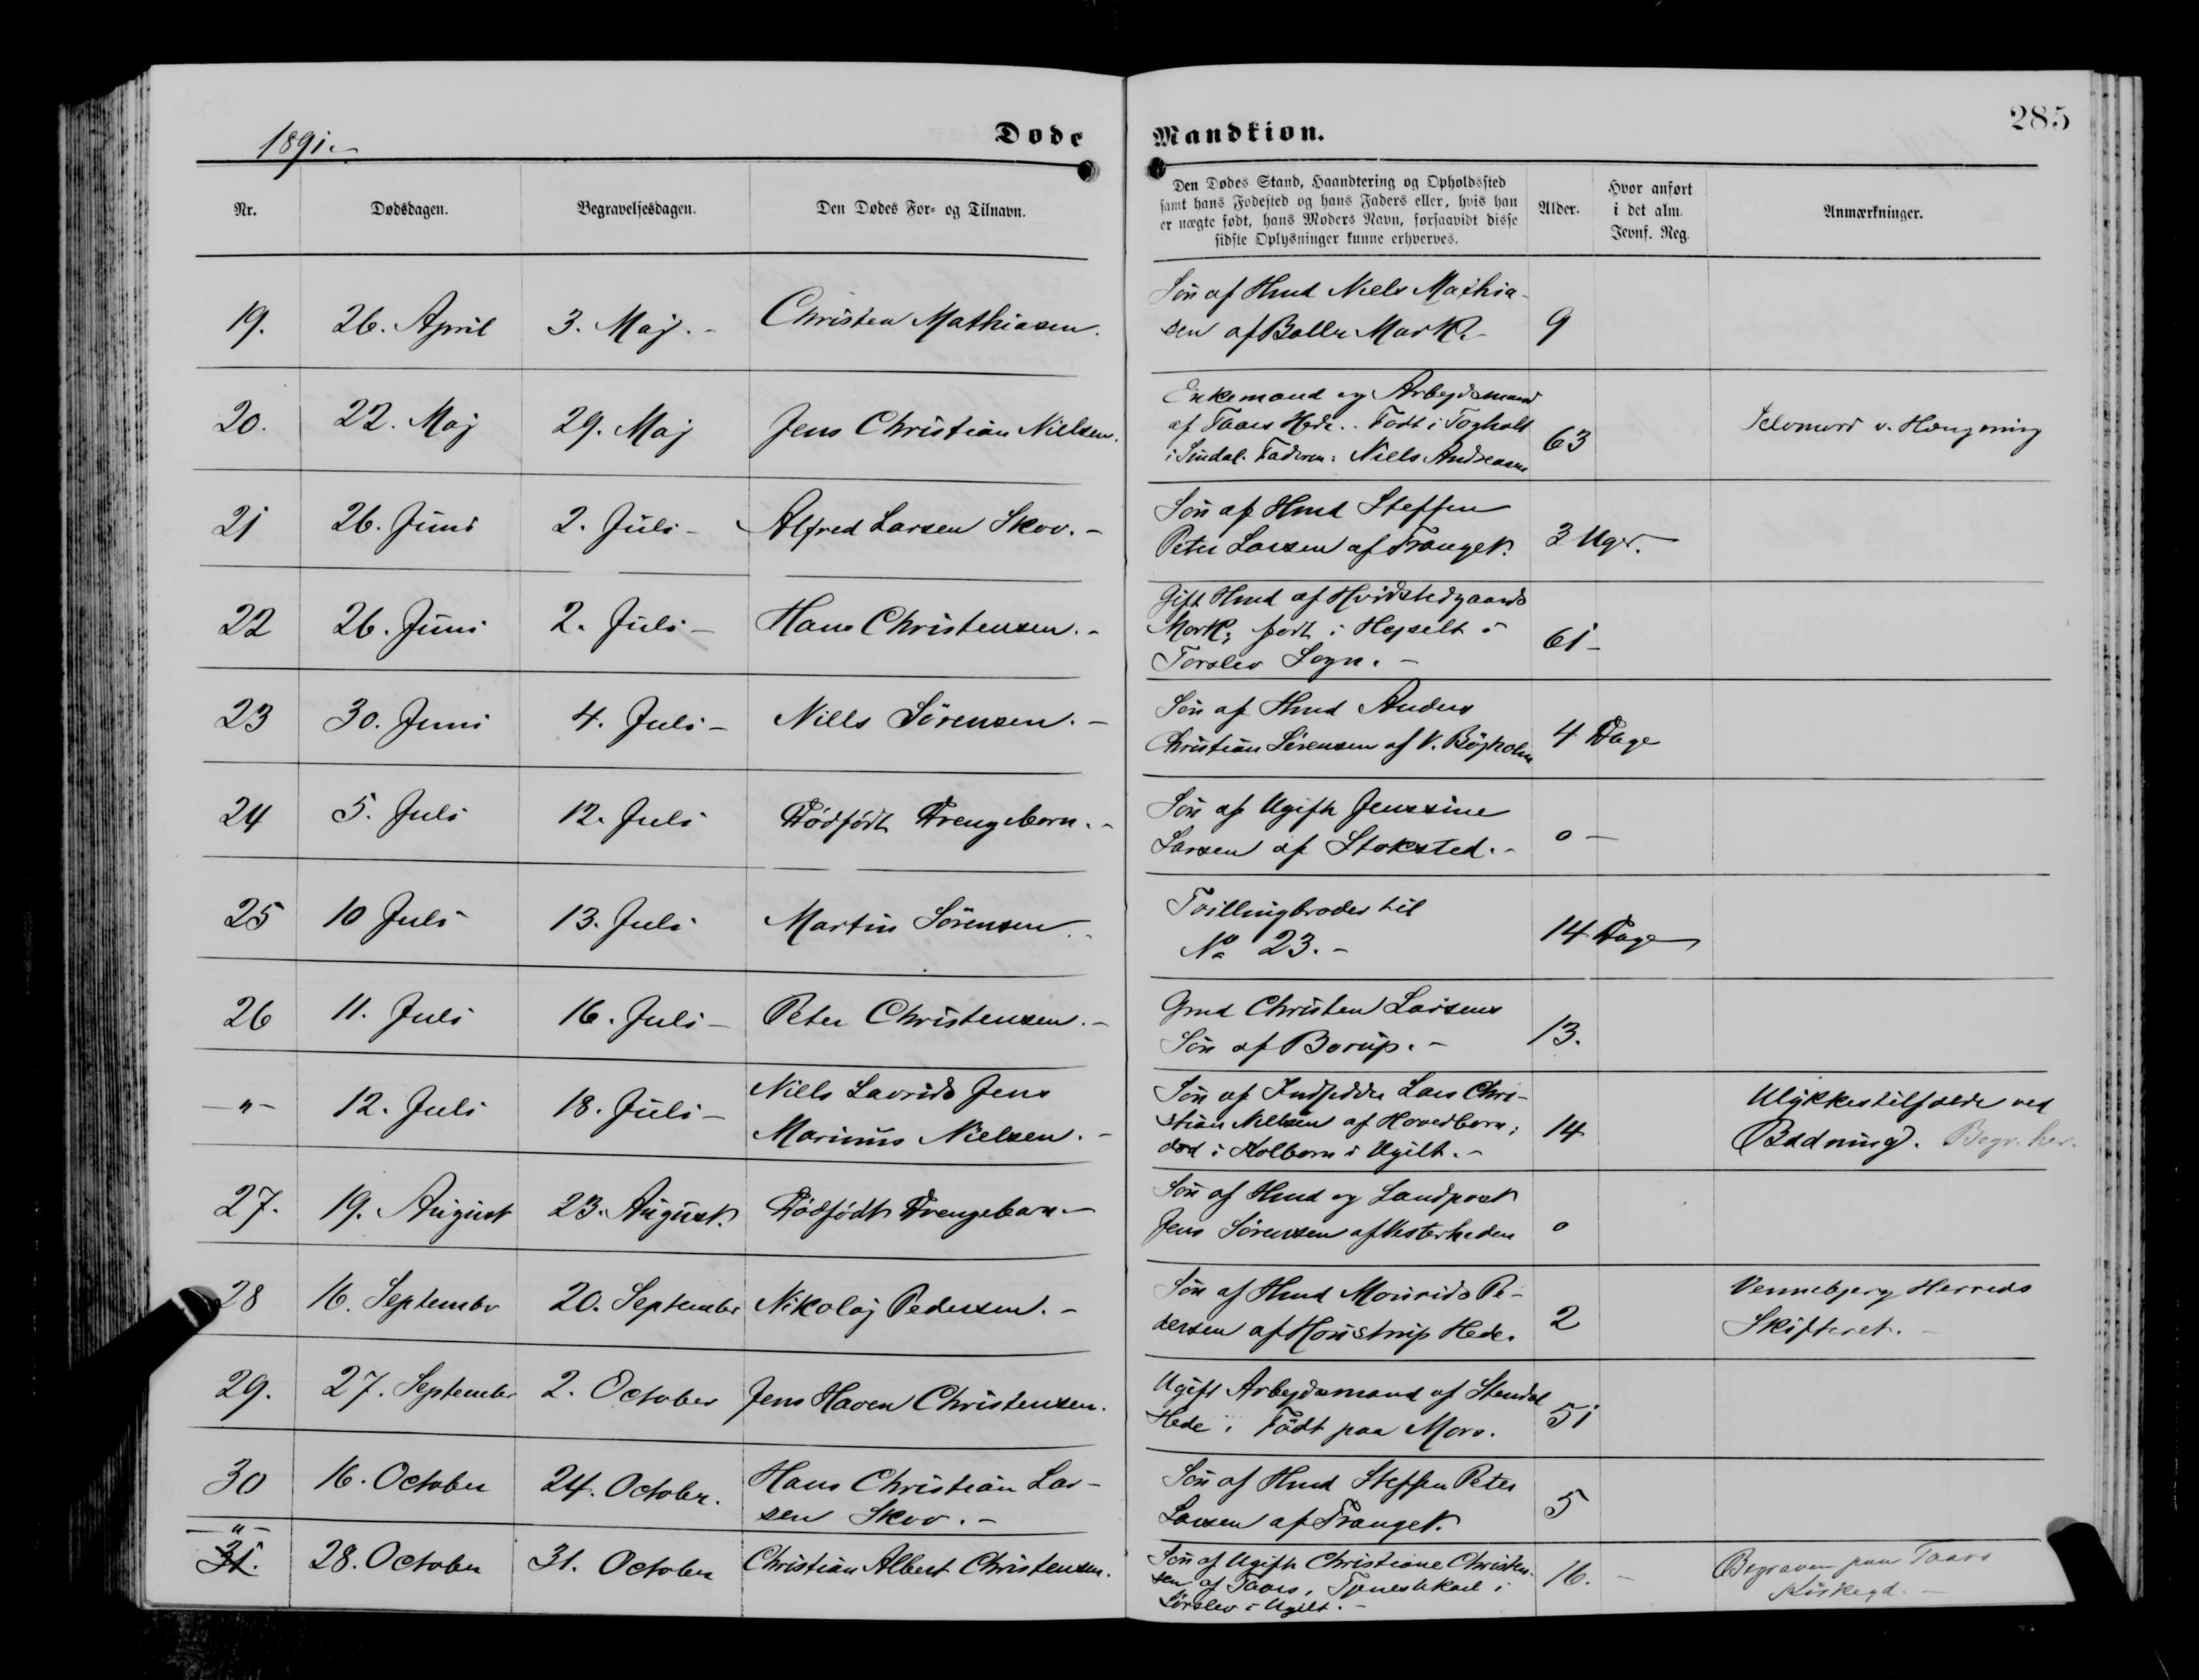 285
1891.-
Døde Mandkiøn.
Nr.
Dødsdagen.
Begravelsesdagen.
Den Dødes For- og Tilnavn.
Den Dødes Stand, Haandtering og Opholdssted
samt hans Fødested og hans Faders eller, hvis han
er uægte født, hans Moders Navn, forsaavidt disse
sidste Oplysninger kunne erhverves.
Alder.
Hvor anført
i det alm.
Jevnf. Reg.
Anmærkninger.
19. 26. April 3. Maj. - Christen Mathiasen.
Søn af Hmd Niels Mathia-
sen af Balle Mark. 9
20. 22. Maj 29. Maj Jens Christian Nielsen.
Enkemand og Arbejdsmand
af Taars Hede. Født i Togholt
i Sindal. Faderen: Niels Andreasen
63
Selvmord v. Hængning
21 26. Juni 2. Juli - Alfred Larsen Skov. -
Søn af Hmd Steffen
Peter Larsen af Tranget. 3 Uger.
22 26. Juni 2. Juli - Hans Christensen. -
Gift Hmd af Hvidstedgaards
Mark; født i Hejselt i
Torslev Sogn. -
61 -
23 30. Juni 4. Juli - Niels Sörensen. -
Søn af Hmd Anders
Christian Sörensen af V. Böjholm 4 Dage
24 5. Juli 12. Juli Dödfödt Drengebarn. -
Søn af Ugift Jenssine
Larsen af Stoksted. - 0 -
25 10 Juli 13. Juli Martin Sörensen. -
Tvillingbroder til
No 23. - 14 Dage
26 11. Juli 16. Juli - Peter Christensen. -
Gmd Christen Larsens
Søn af Borup. - 13.
- " - 12. Juli 18. Juli - Niels Lavrids Jens
Marinus Nielsen. -
Søn af Indsidder Lars Chri-
stian Nielsen af Hovedborn;
død i Kolborn i Ugilt. -
14
Ulykkestilfælde ved
Badning. Begr. her.
27. 19. August 23. August. Dödfödt Drengebarn. -
Søn af Hmd og Landpost
Jens Sörensen af Vesterheden 0
28 16. September 20. September Nikolaj Pedersen. -
Søn af Hmd Mourids Pe-
dersen af Houstrup Hede. 2
Vennebjerg Herreds
Skifteret. -
29. 27. September 2. October Jens Haven Christensen.
Ugift Arbejdsmand af Stendal
Hede. Födt paa Mors. 51
30 16. October 24. October. Hans Christian Lar-
sen Skov. -
Søn af Hmd Steffen Peter
Larsen af Tranget. 5
- " -
31. 28. October 31. October Christian Albert Christensen.
Søn af Ugift Christiane Christen-
sen af Taars, Tjenestekarl i
Sørslev i Ugilt. -
16. -
Begraven paa Taars
Kirkegd. -